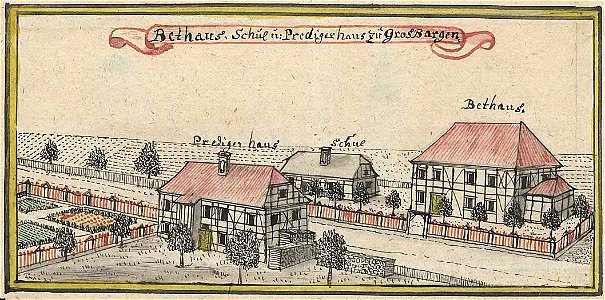 Bethaus. Schul u: Prediger haus zu Gros Bargen.
Bethaus.
Prediger haus
Schul